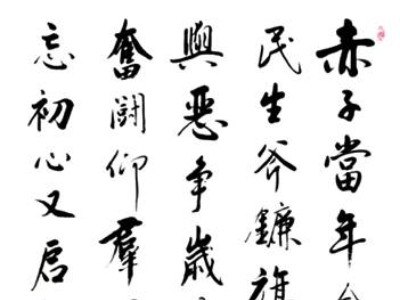 赤子當年
民生斧鐮旗
與惡爭歲
奮鬪仰羣
忘初心又启